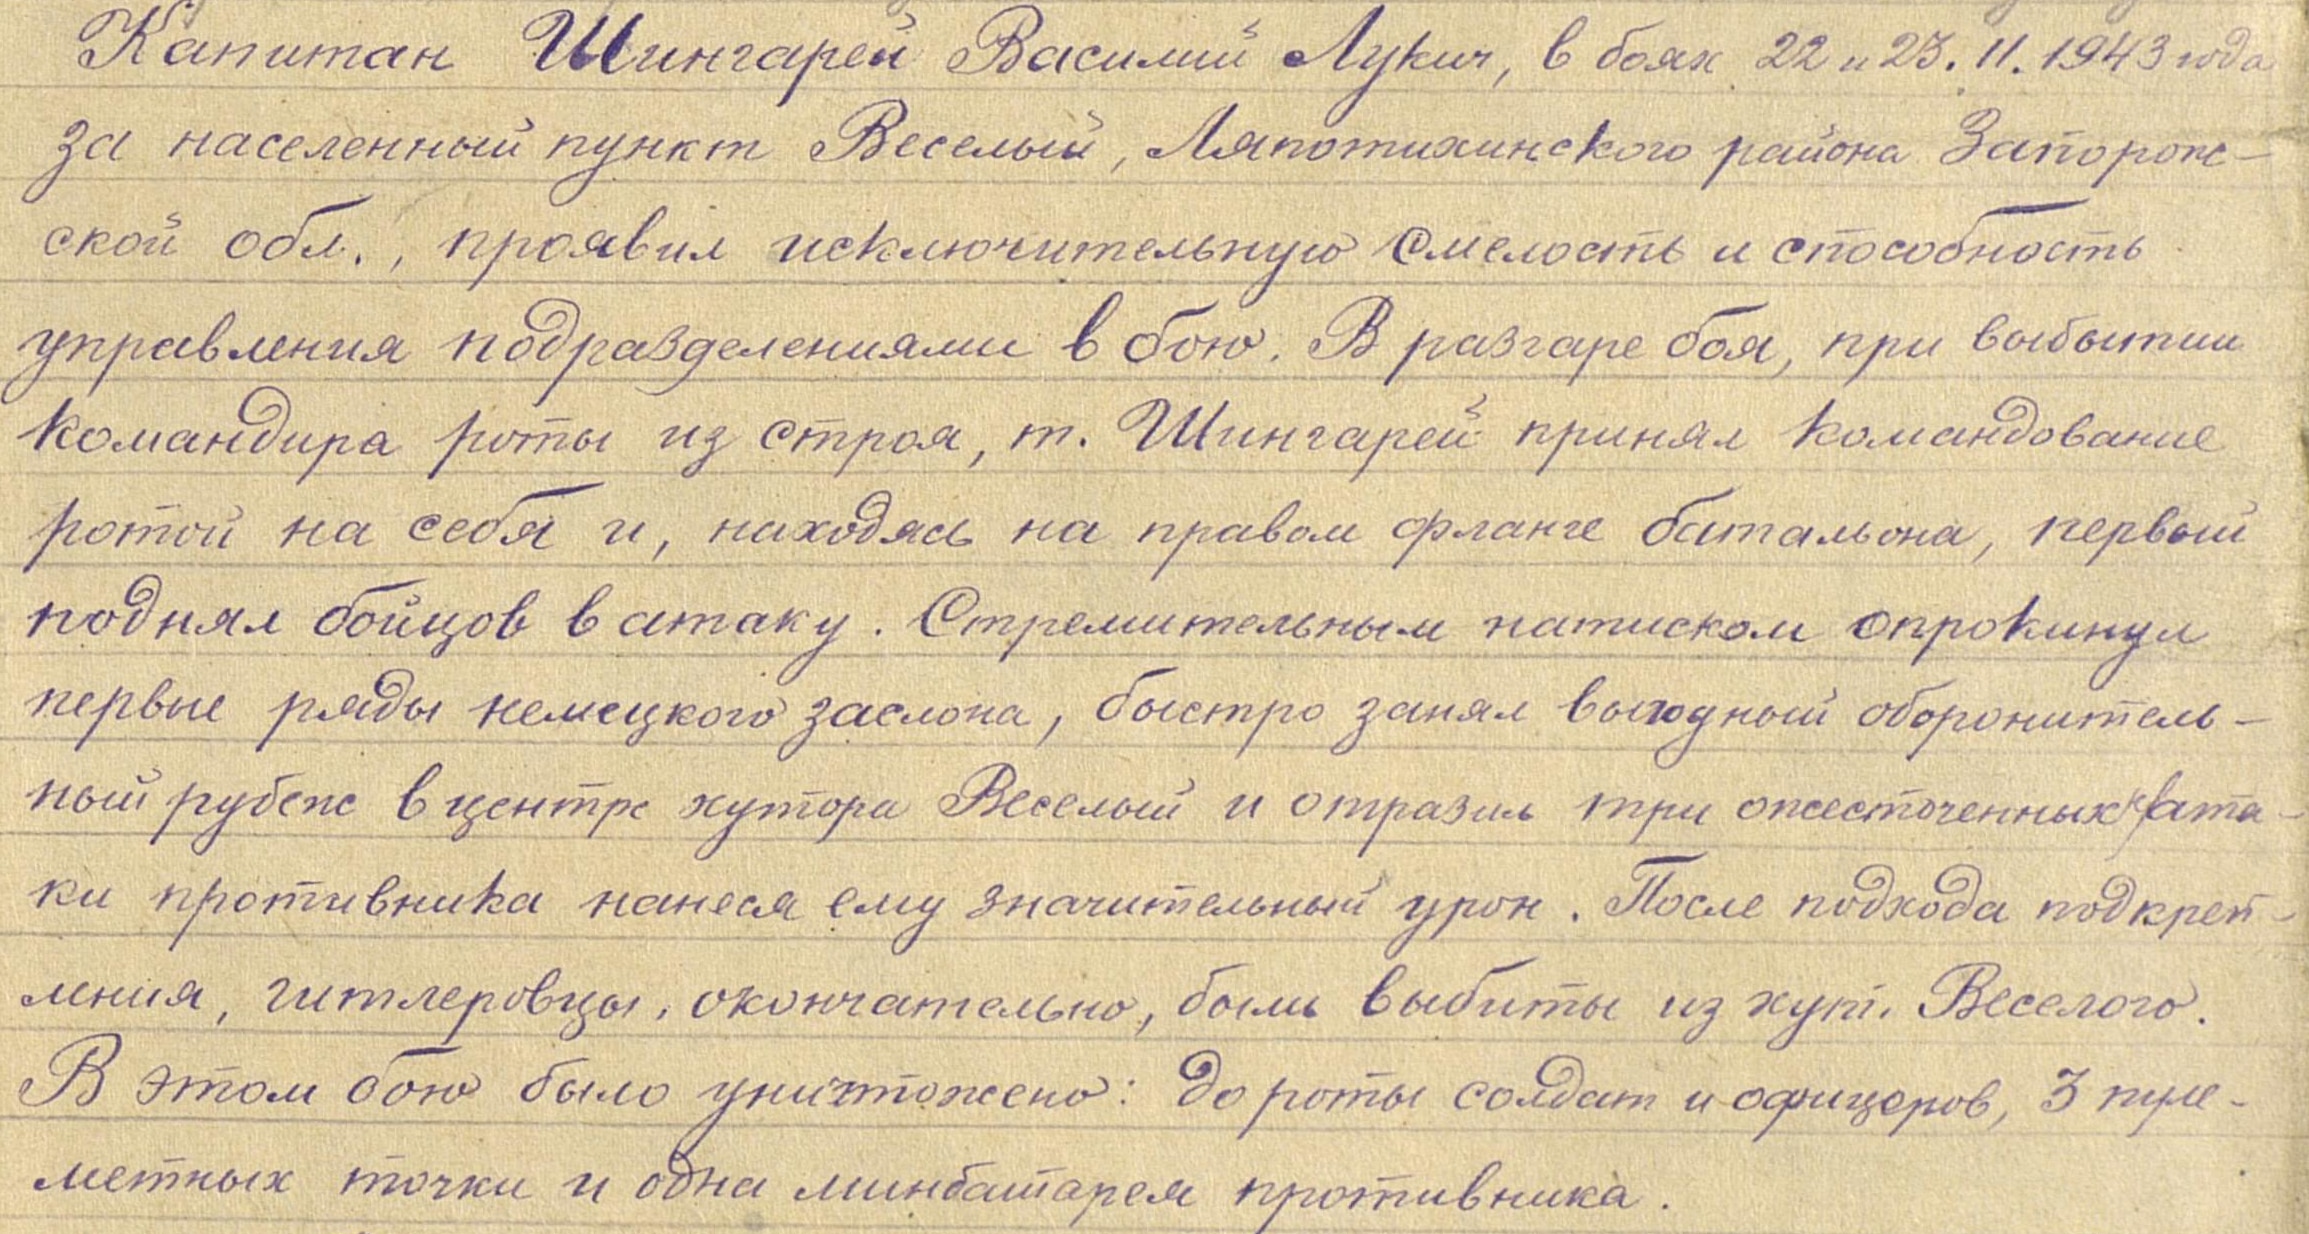 Капитан Шингарей Василий Лукич, в боях 22 и 23. 11. 1943 года
за населенный пункт Веселый, Ляпотихинского района Запорож-
ской обл., проявил исключительную смелость и способность
управления подразделениями в бою. В разгаре боя, при выбытии
командира роты из строя, т. Шингарей принял командование
ротой на себя и, находясь на правом фланге батальона, первый
поднял бойцов в атаку. Стремительным натиском опрокинул
первые ряды немецкого заслона, быстро занял выгодный оборонитель-
ный рубеж в центре хутора Веселый и отразил три ожесточенных ата-
ки противника нанеся ему значительный урон. После подхода подкреп-
ления, гитлеровцы, окончательно, были выбиты из хут. Веселого.
В этом бою было уничтожено: до роты солдат и офицеров, 3 пуле-
метных точки и одна минбатарея противника.